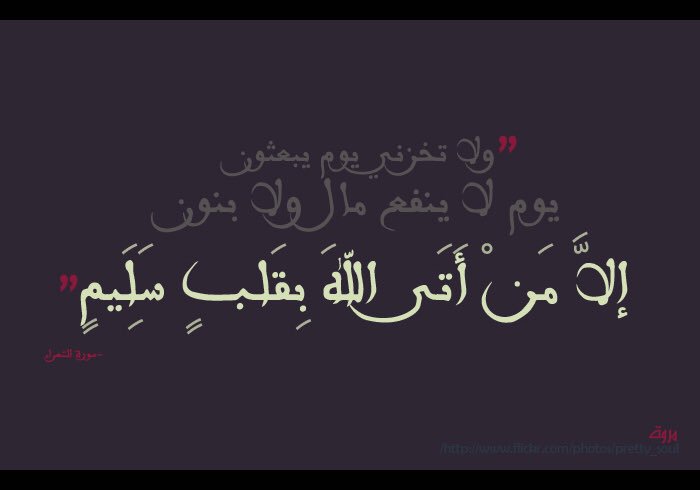 "ولا تخزني يوم يبعثون
يوم لا ينفع مال ولا بنون
إلاَّ مَنْ أَتَى اللَّهَ بِقَلبٍ سَلَِيمٍ"
-سورة الشعراء
مروة
http://www.flickr.com/photos/pretty_soul/